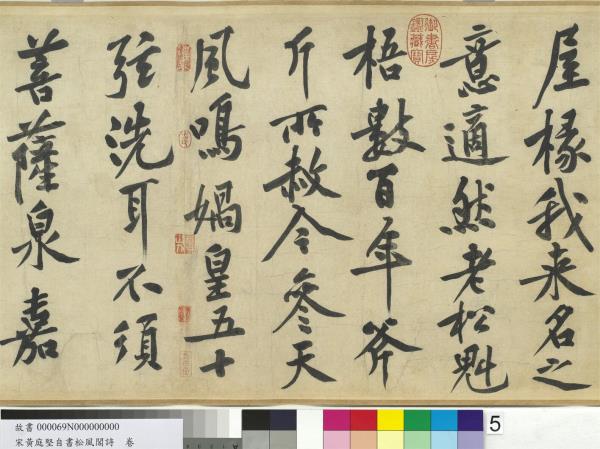 屋椽我来名之
意適然老松魁
梧數百年斧
斤所赦今參天
風鳴媧皇五十
弦洗耳不須
菩薩泉嘉
御書房鑑藏寶
故書 000069N000000000
宋黃庭堅自書松風閣詩 卷
5